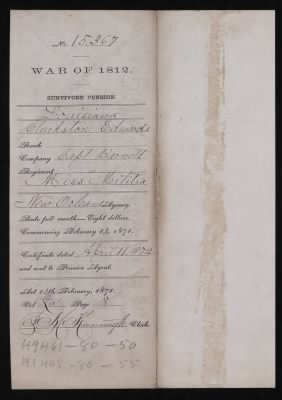 No. 15.367
WAR OF 1812.
SURVIVORS' PENSION.
Louisiana
Clackston Edwards
Rank
Company Capt
Regiment
Miss Militia
New Orleans Agency.
Rate per month—Eight dollars.
Commencing February 14, 1871.
Certificate dated April 11, 1874
and sent to Pension Agent.
Act 14th February, 1871.
Vol. Page
Clerk.
49461-80-50
41405-86-55